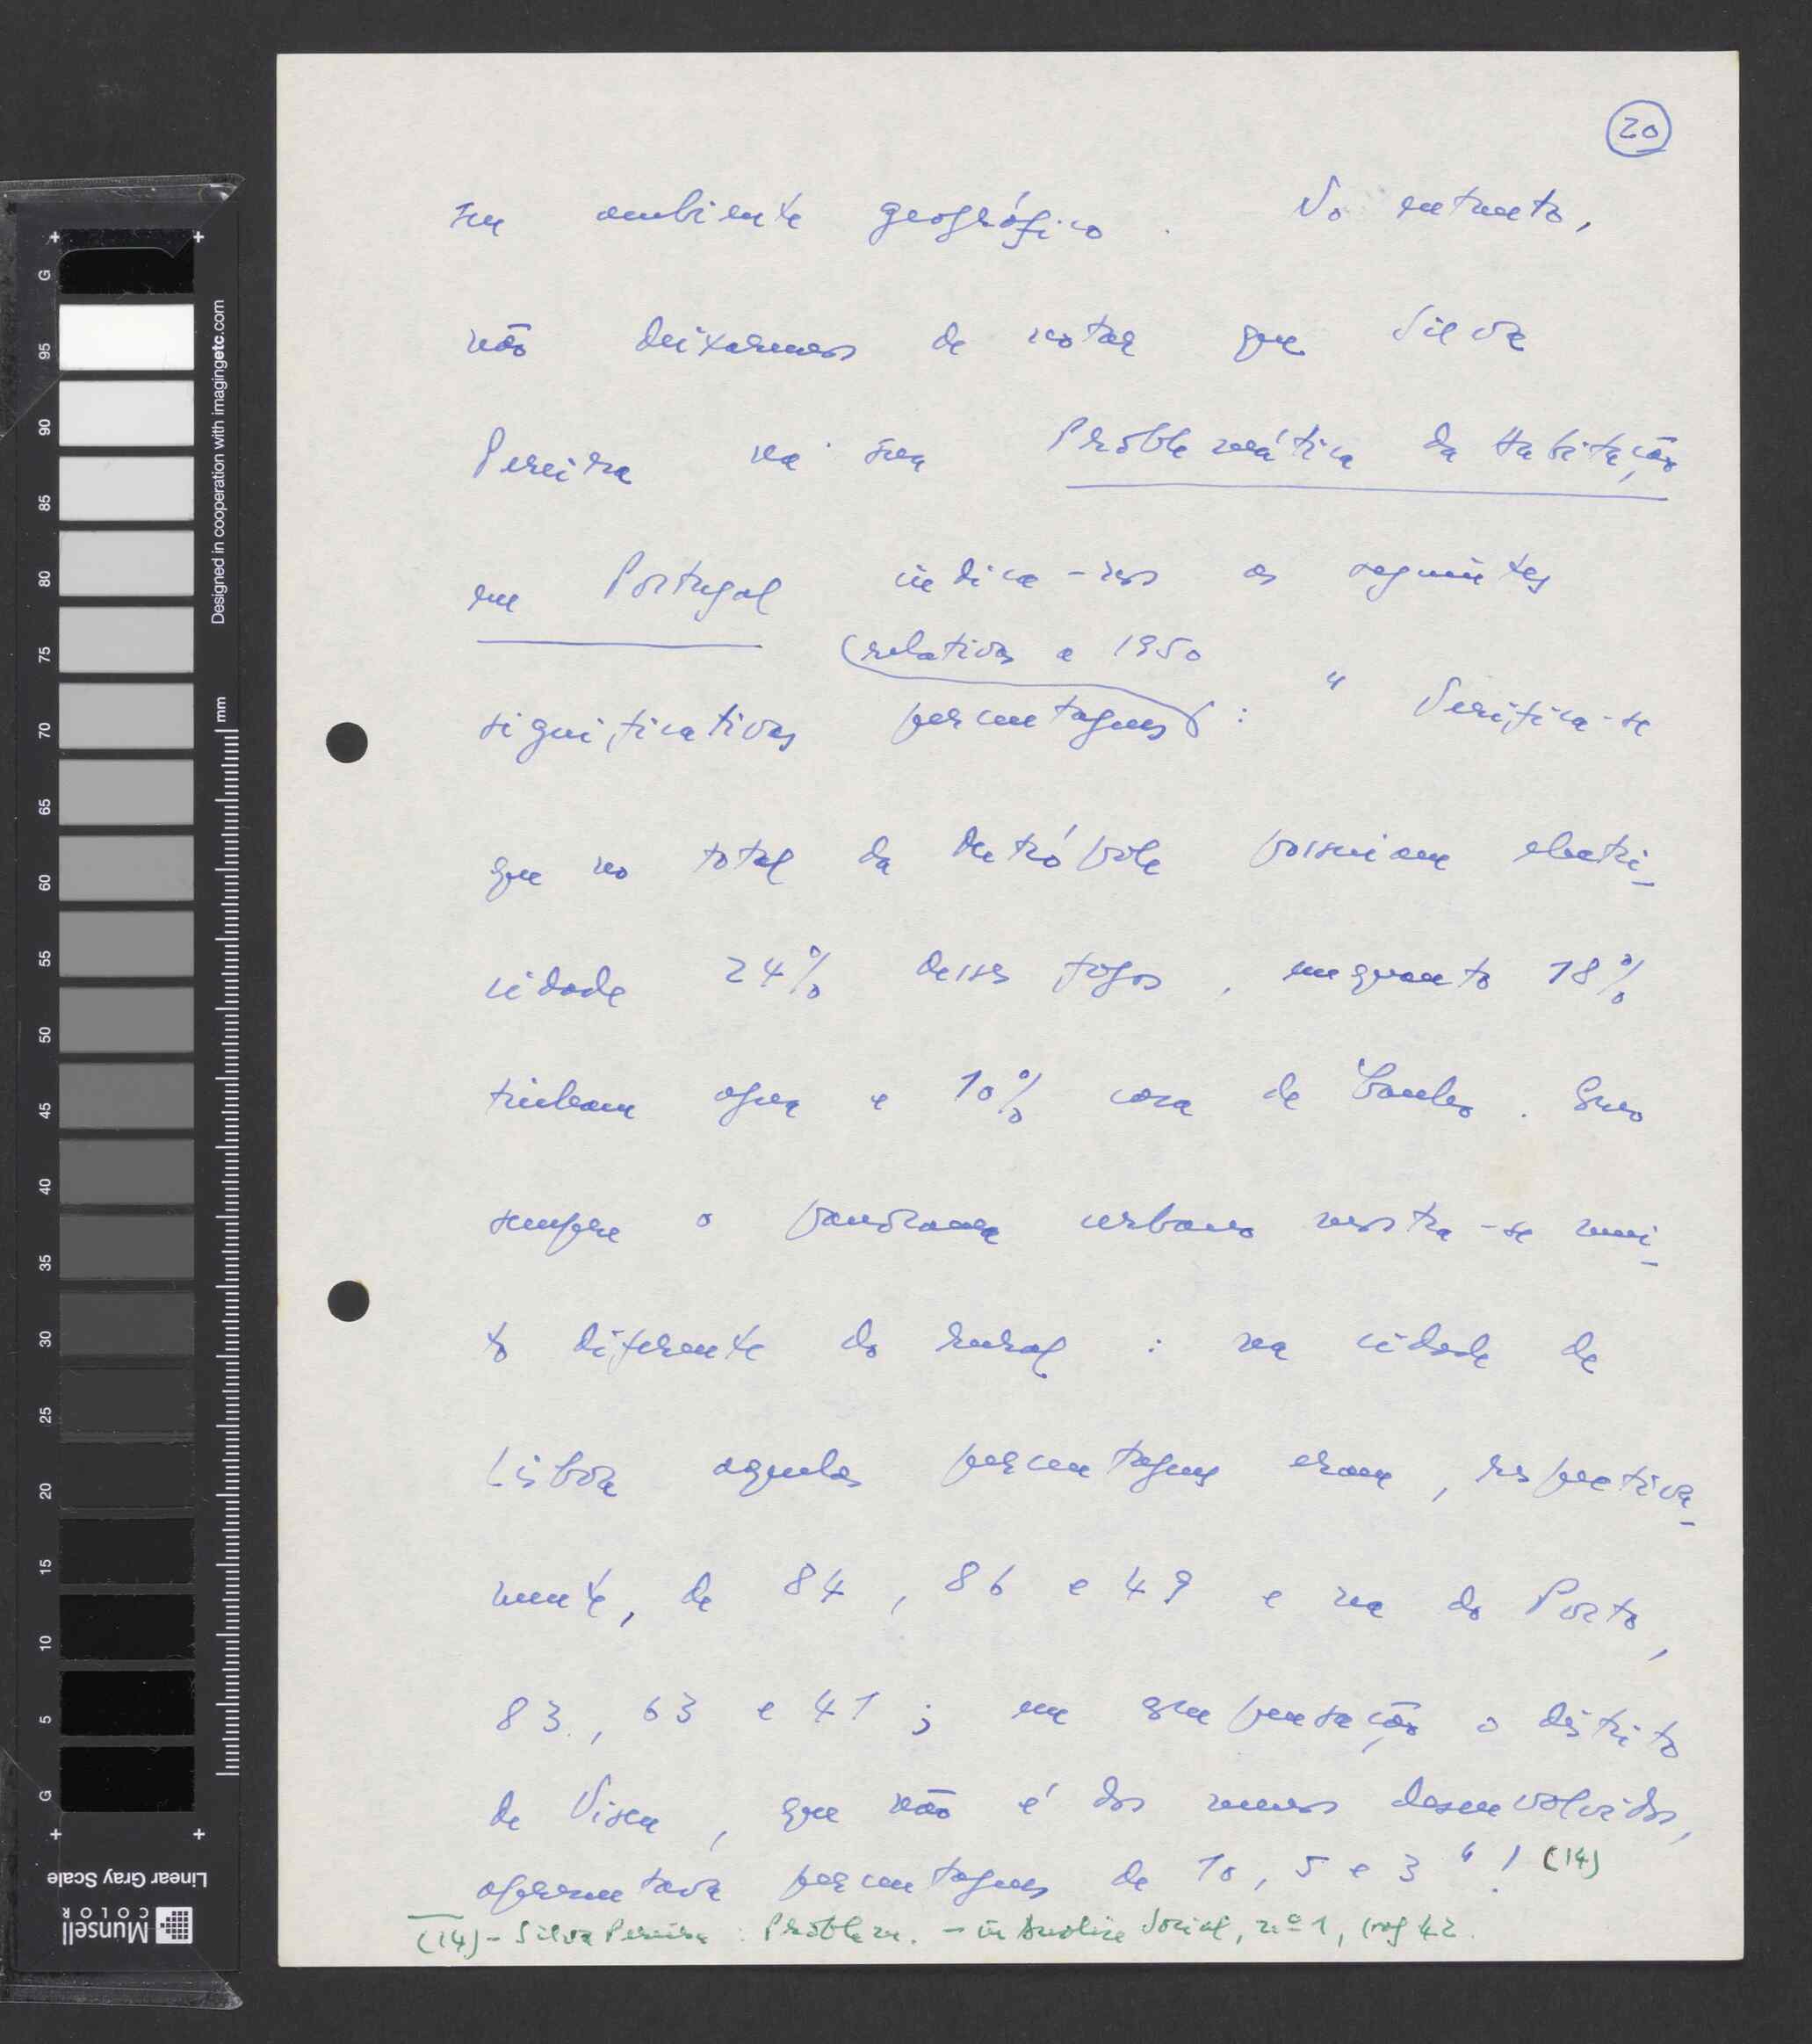 20
seu ambiente geográfico. No entanto,
não deixaremos de notar que Silva
Pereira na sua Problemática da Habitação
em Portugal indica-nos as seguintes
(relativas a 1950
significativas percentagens) : "Verifica-se
que no total da Metrópole possuiam electri-
cidade 24% desses fogos, enquanto 18%
tinham agua e 10% casa de banho. Como
sempre o panorama urbano mostra-se mui-
to diferente do rural : na cidade de
Lisboa aquelas percentagens eram, respectiva-
mente, de 84, 86 e 49 e na do Porto,
83, 63 e 41 ; em compensação o distrito
de Viseu, que não é dos menos desenvolvidos,
apresentava percentagens de 10, 5 e 3 " ! (14)
(14) - Silva Pereira : Problem. - in Analise Social, nº 1, pag 42.
G
95
90
85
80
75
70
65
60
55
50
45
40
35
30
25
20
15
10
5
G
mm
Designed in cooperation with imagingetc.com
Linear Gray Scale
Munsell
COLOR